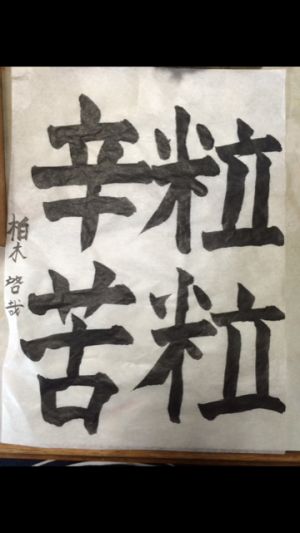 粒粒
辛苦
柏木啓哉